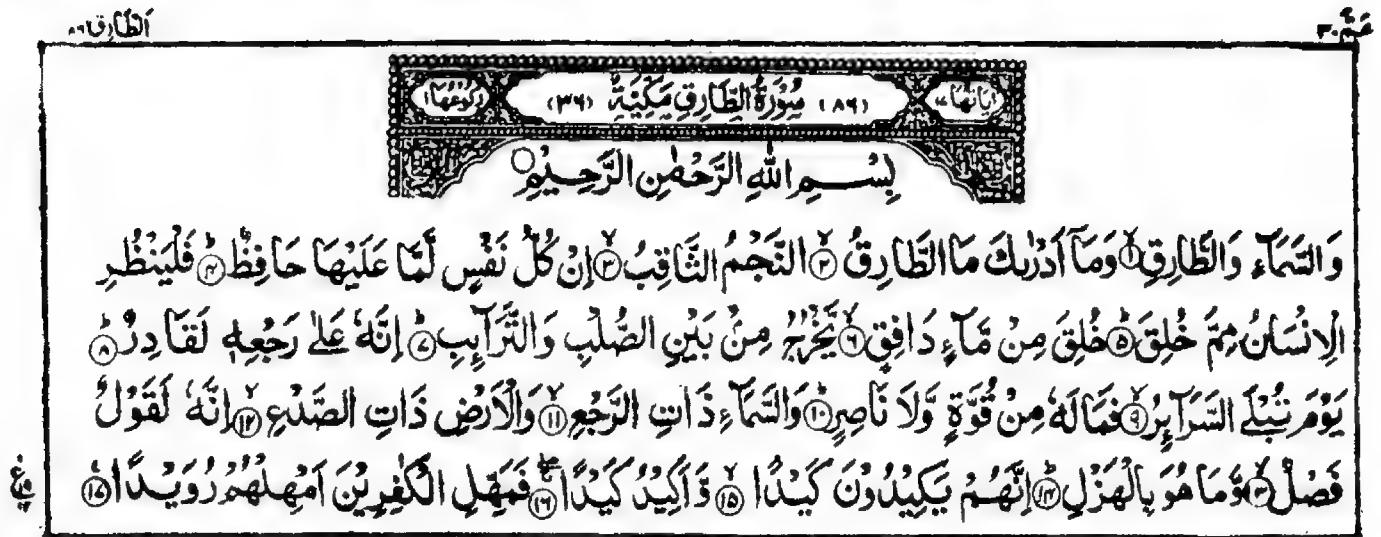 عَمَّ ٣٠
اَلطَّارِق ٨٦
اٰيَاتُهَا ١٧ (٨٦) سُوْرَةُ الطَّارِقِ مَكِّيَّةٌ (٣٦) رُكُوْعُهَا ١
بِسْمِ اللّٰهِ الرَّحْمٰنِ الرَّحِيْمِ
وَالسَّمَآءِ وَالطَّارِقِ ۙ﴿١﴾ وَمَآ اَدْرٰىكَ مَا الطَّارِقُ ۙ﴿٢﴾ النَّجْمُ الثَّاقِبُ ۙ﴿٣﴾ اِنْ كُلُّ نَفْسٍ لَّمَّا عَلَيْهَا حَافِظٌ ؕ﴿٤﴾ فَلْيَنْظُرِ
الْاِنْسَانُ مِمَّ خُلِقَ ؕ﴿٥﴾ خُلِقَ مِنْ مَّآءٍ دَافِقٍ ۙ﴿٦﴾ يَّخْرُجُ مِنْۢ بَيْنِ الصُّلْبِ وَالتَّرَآئِبِ ؕ﴿٧﴾ اِنَّهٗ عَلٰى رَجْعِهٖ لَقَادِرٌ ؕ﴿٨﴾
يَوْمَ تُبْلَى السَّرَآئِرُ ۙ﴿٩﴾ فَمَا لَهٗ مِنْ قُوَّةٍ وَّلَا نَاصِرٍ ؕ﴿١٠﴾ وَالسَّمَآءِ ذَاتِ الرَّجْعِ ۙ﴿١١﴾ وَالْاَرْضِ ذَاتِ الصَّدْعِ ۙ﴿١٢﴾ اِنَّهٗ لَقَوْلٌ
فَصْلٌ ۙ﴿١٣﴾ وَّمَا هُوَ بِالْهَزْلِ ؕ﴿١٤﴾ اِنَّهُمْ يَكِيْدُوْنَ كَيْدًا ۙ﴿١٥﴾ وَّاَكِيْدُ كَيْدًا ۚۖ﴿١٦﴾ فَمَهِّلِ الْكٰفِرِيْنَ اَمْهِلْهُمْ رُوَيْدًا ﴿١٧﴾